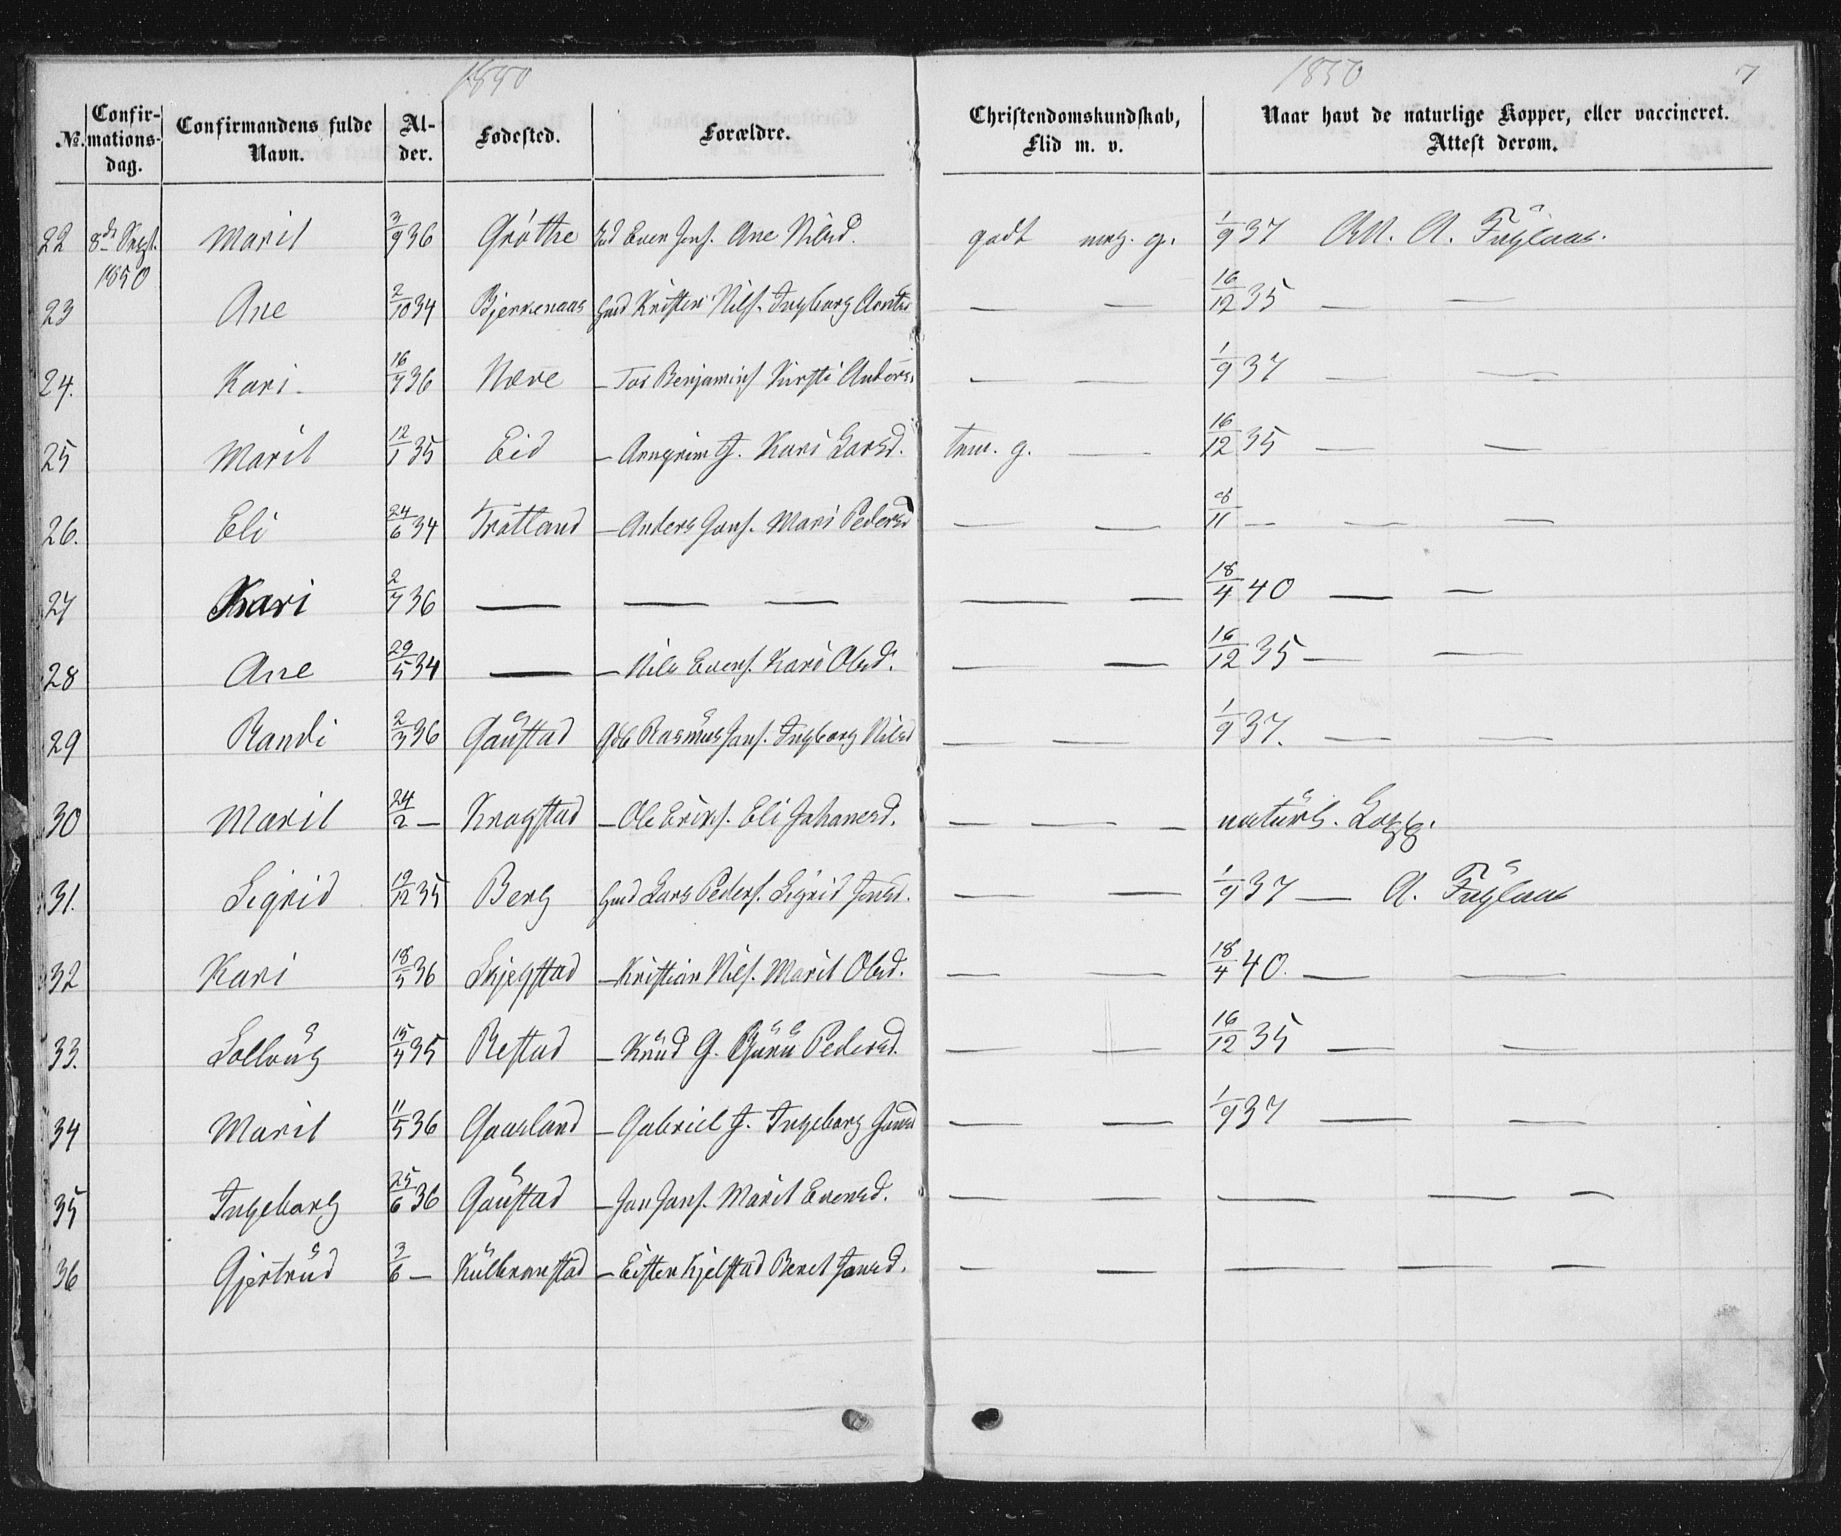 1850
1850
7
No. Confirmations-dag. Confirmandens fulde Navn. Alder. Fødested. Forældre. Christendomskundskab, Flid m. v. Naar havt de naturlige Kopper, eller vaccineret. Attest derom.
22 8de Sept. 1850 Marit 3/9 36 Grøthe Even Jons. Ane Nilsd. godt meg. g. 1/9 37 A. Fuglaas.
23 Ane 2/10 34 Bjerkenaas Gmd Kristen Nils. Ingborg — — 16/12 35 — —
24. Kari 16/7 36 Nære — Benjamins. Kirsti Anders. — — 1/9 37 — —
25 Marit 12/1 35 Eid — Arngrim J. Kari Larsd. tem. g. — 16/12 35 — —
26. Eli 24/6 34 Trøtland — Anders Jons. Mari Pedersd — — 8/11 — — —
27 Kari 2/7 36 — — — — — 18/4 40 — —
28 Ane 29/5 34 — — Nils Evens. Kari Olsd. — — 16/12 35 — —
29 Randi 2/3 36 Gaustad Gdb Rasmus Jans. Ingborg Nilsd — — 1/9 37. — —
30 Marit 24/2 — Kragstad — Ole Eriks. Eli Johanesd. — — — naturl. Kopp.
31. Sigrid 19/12 35 Berg Gmd Lars Peders. Sigrid Jonsd. — — 1/9 37 — A. Fuglaas
32 Kari 18/5 36 Skjegstad — Kristian Nils. Marit Olsd. — — 18/4 40. — —
33. Sollaug 15/4 35 Restad — Knud G. Guru Pedersd. — — 16/12 35 — —
34 Marit 11/5 36 Gaasland — Gabriel J. Ingeborg Jonsd — — 1/9 37 — —
35 Ingeborg 25/6 36 Gaustad — Jon Jons. Marit Evensd. — — — — —
36 Gjertrud 3/6 — Kulbranstad — Eisten Kjelstad Beret Jonsd. — — — — —